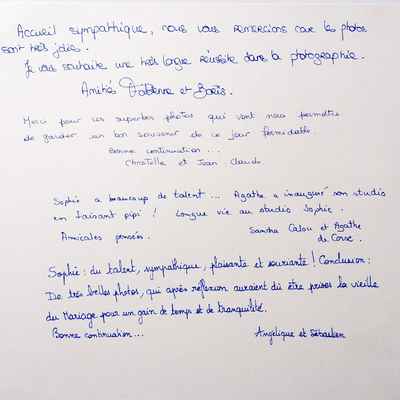 Accueil sympathique, nous vous remercions car les photos
sont très jolies.
Je vous souhaite une très longue réussite dans la photographie.
Amitiés Fabienne et Boris.
Merci pour ces superbes photos qui vont nous permettre
de garder un bon souvenir de ce jour formidable.
Bonne continuation...
Christelle et Jean Claude
Sophie a beaucoup de talent... Agathe a inauguré son studio
en faisant pipi! Longue vie au studio Sophie.
Amicales pensées.
Sandra Calou et Agathe
de Corse.
Sophie: du talent, sympathique, plaisante et souriante! Conclusion:
De très belles photos, qui après réflexion auraient dû être prises la vieille
du Mariage pour un gain de temps et de tranquilité.
Bonne continuation...
Angélique et Sébastien